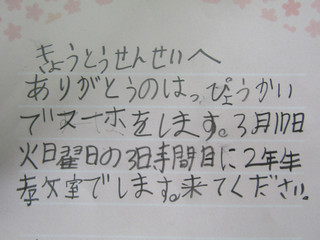 きょうとうせんせいへ
ありがとうのはっぴょうかい
でスーホをします。3月17日
火日曜日の3日時間目に2年生
教室でします。来てください。